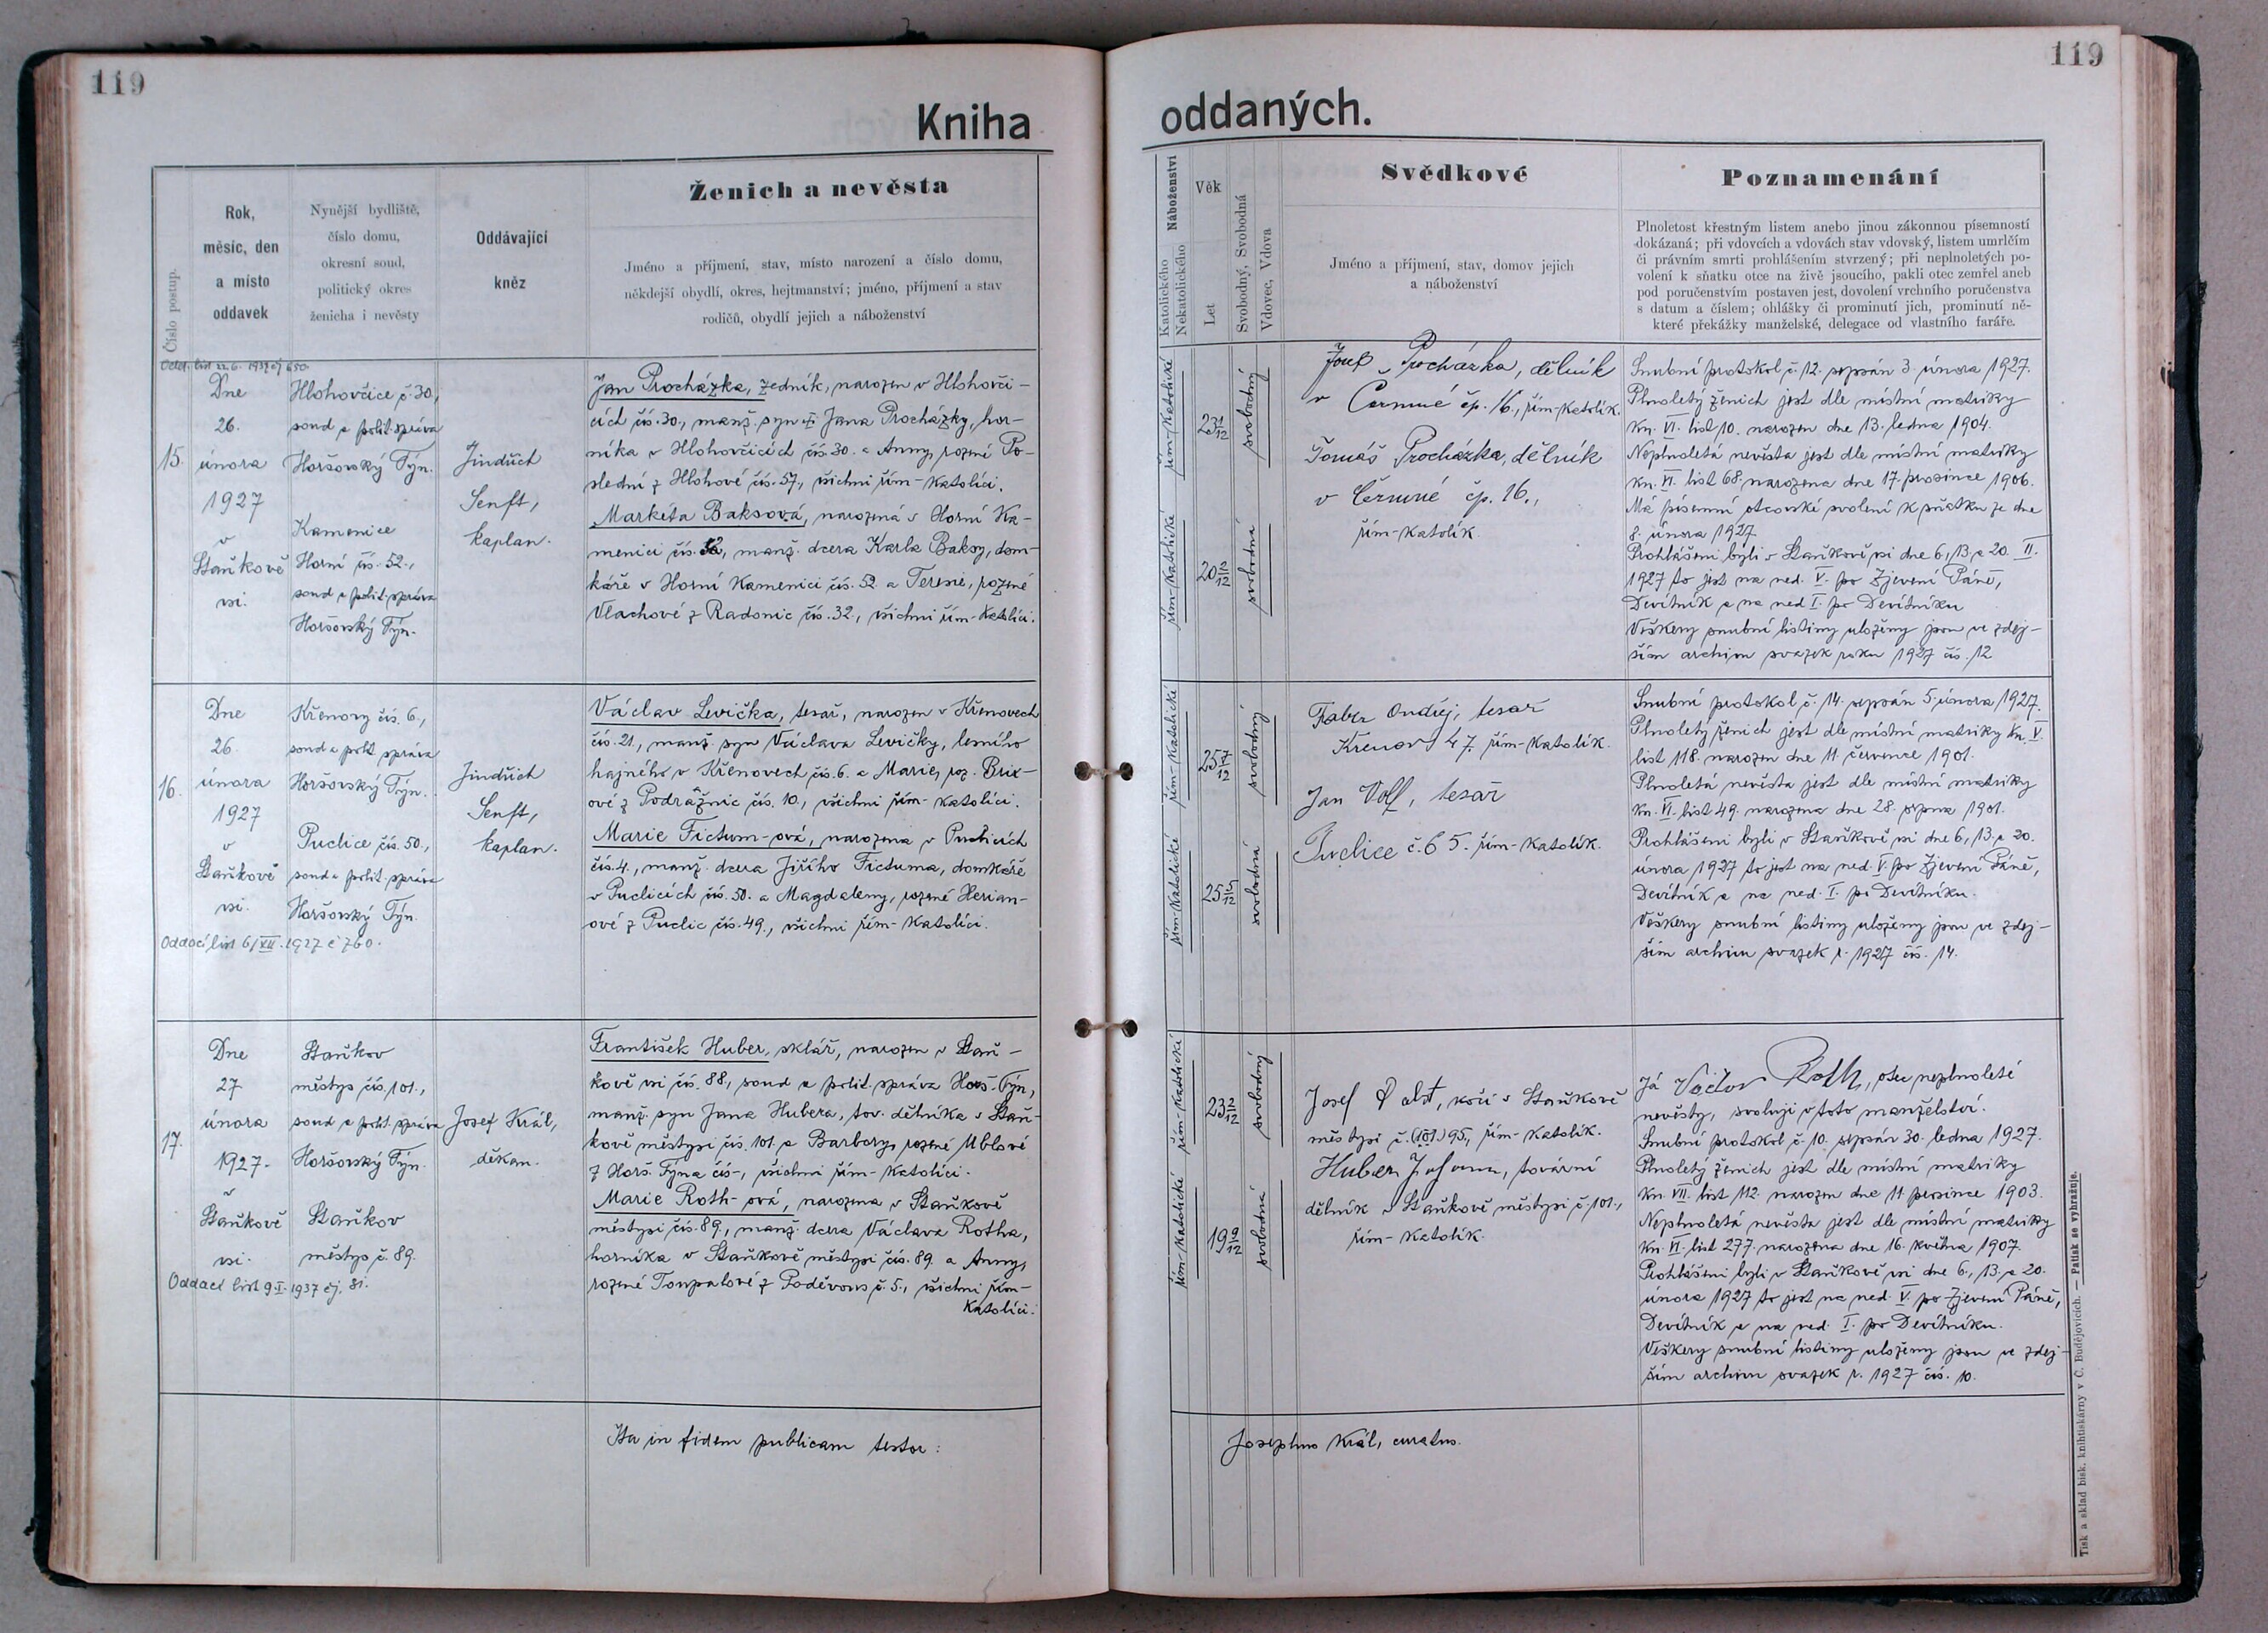 119
119
Kniha
oddaných.
Číslo postup.
Rok,
měsíc, den
a místo
oddavek
Nynější bydliště,
číslo domu,
okresní soud,
politický okres
ženicha i nevěsty
Oddávající
kněz
Ženich a nevěsta
Jméno a příjmení, stav, místo narození a číslo domu,
někdejší obydlí, okres, hejtmanství; jméno, příjmení a stav
rodičů, obydlí jejich a náboženství
Náboženství
Katolického
Nekatolického
Věk
Let
Svobodný, Svobodná
Vdovec, Vdova
Svědkové
Jméno a příjmení, stav, domov jejich
a náboženství
Poznamenání
Plnoletost křestným listem anebo jinou zákonnou písemností
dokázaná; při vdovcích a vdovách stav vdovský, listem umrlčím
či právním smrti prohlášením stvrzený; při neplnoletých po-
volení k sňatku otce na živě jsoucího, pakli otec zemřel aneb
pod poručenstvím postaven jest, dovolení vrchního poručenstva
s datum a číslem; ohlášky či prominutí jich, prominutí ně-
které překážky manželské, delegace od vlastního faráře.
Odd. list 22.6. 1939 čj 650.
15.
Dne
26.
února
1927
v
Staňkově
vsi.
Hlohovčice č. 30,
soud a polit. správa
Horšovský Týn.
Kamenice
Horní čís. 52.,
soud a polit. správa
Horšovský Týn.
Jindřich
Senft,
kaplan.
Jan Procházka, zedník, narozen v Hlohovči-
cích čís. 30., manž. syn Jana Procházky, hor-
níka v Hlohovčicích čís. 30. a Anny, rozené Po-
slední z Hlohové čís. 57., všichni řím-katolíci.
Marketa Baksová, narozená v Horní Ka-
menici čís. 52, manž. dcera Karla Baksy, dom-
káře v Horní Kamenici čís. 52. a Terezie, rozené
Vlachové z Radonic čís. 32., všichni řím-katolíci.
řím-katolické
23 1/12
svobodný
řím-katolické
20 2/12
svobodná
Josef Procházka, dělník
v Čermné čp. 16., řím-katolík.
Tomáš Procházka, dělník
v Čermné čp. 16.,
řím-katolík.
Snubní protokol č. 12. sepsán 3. února 1927.
Plnoletý ženich jest dle místní matriky
kn. VI. list 10. narozen dne 13. ledna 1904.
Neplnoletá nevěsta jest dle místní matriky
kn. VI. list 68. narozena dne 17. prosince 1906.
Má písemní otcovské svolení k sňatku ze dne
8. února 1927.
Prohlášeni byli v Staňkově vsi dne 6., 13. a 20. II.
1927 to jest na ned. V. po Zjevení Páně,
Devítník a na ned I. po Devítníku
Veškery snubní listiny uloženy jsou ve zdej-
ším archivu svazek roku 1927 čís. 12
16.
Dne
26.
února
1927
v
Staňkově
vsi.
Oddací list 6/XII. 1927 č 760.
Křenovy čís. 6.,
soud a polit správa
Horšovský Týn.
Puclice čís. 50.,
soud a polit. správa
Horšovský Týn.
Jindřich
Senft,
kaplan.
Václav Levička, tesař, narozen v Křenovech
čís. 21., manž. syn Václava Levičky, lesního
hajného v Křenovech čís. 6. a Marie, roz. Brix-
ové z Podražnic čís. 10., všichni řím-katolíci.
Marie Fictum-ová, narozena v Puclicích
čís. 4., manž. dcera Jiřího Fictuma, domkáře
v Puclicích čís. 50. a Magdaleny, rozené Herian-
ové z Puclic čís. 49., všichni řím-katolíci.
řím-katolické
25 7/12
svobodný
řím-katolické
25 5/12
svobodná
Faber Ondřej, tesař
Křenov 47. řím-katolík.
Jan Volf, tesař
Puclice č. 65. řím-katolík.
Snubní protokol č. 14. sepsán 5. února 1927.
Plnoletý ženich jest dle místní matriky kn. V.
list 118. narozen dne 11. července 1901.
Plnoletá nevěsta jest dle místní matriky
kn. VI. list 49. narozena dne 28. srpna 1901.
Prohlášeni byli v Staňkově vsi dne 6., 13. a 20.
února 1927 to jest na ned. V. po Zjevení Páně,
Devítník a na ned. I. po Devítníku.
Veškery snubní listiny uloženy jsou ve zdej-
ším archivu svazek r. 1927 čís. 14.
17.
Dne
27.
února
1927.
v
Staňkově
vsi.
Oddací list 9.I. 1937 čj. 81.
Staňkov
městys čís. 101.,
soud a polit. správa
Horšovský Týn.
Staňkov
městys č. 89.
Josef Král,
děkan.
František Huber, sklář, narozen v Staň-
kově vsi čís. 88., soud a polit. správa Horš-Týn,
manž. syn Jana Hubera, tov. dělníka v Staň-
kově městysi čís. 101. a Barbory, rozené Ublové
z Horš. Týna čís-, všichni řím-katolíci.
Marie Roth-ová, narozena v Staňkově
městysi čís. 89., manž. dcera Václava Rotha,
horníka v Staňkově městysi čís. 89. a Anny,
rozené Toupalové z Poděvous č. 5., všichni řím-
katolíci.
řím-katolické
23 2/12
svobodný
řím-katolické
19 9/12
svobodná
Josef, kočí v Staňkově
městysi č. (101.) 95., řím-katolík.
Huber Johann, tovární
dělník v Staňkově městysi č. 101.,
řím-katolík.
Já Václav Roth, otec neplnoleté
nevěsty, svoluji v toto manželství.
Snubní protokol č. 10. sepsán 30. ledna 1927.
Plnoletý ženich jest dle místní matriky
kn. VII. list 112. narozen dne 11. prosince 1903.
Neplnoletá nevěsta jest dle místní matriky
kn. VI. list 277. narozena dne 16. května 1907.
Prohlášeni byli v Staňkově vsi dne 6., 13. a 20.
února 1927 to jest na ned. V. po Zjevení Páně,
Devítník a na ned. I. po Devítníku.
Veškery snubní listiny uloženy jsou ve zdej-
ším archivu svazek r. 1927 čís. 10.
Ita in fidem publicam testor:
Josephus Král, curatus.
Tisk a sklad bisk. knihtiskárny v Č. Budějovicích. — Patisk se vyhražuje.